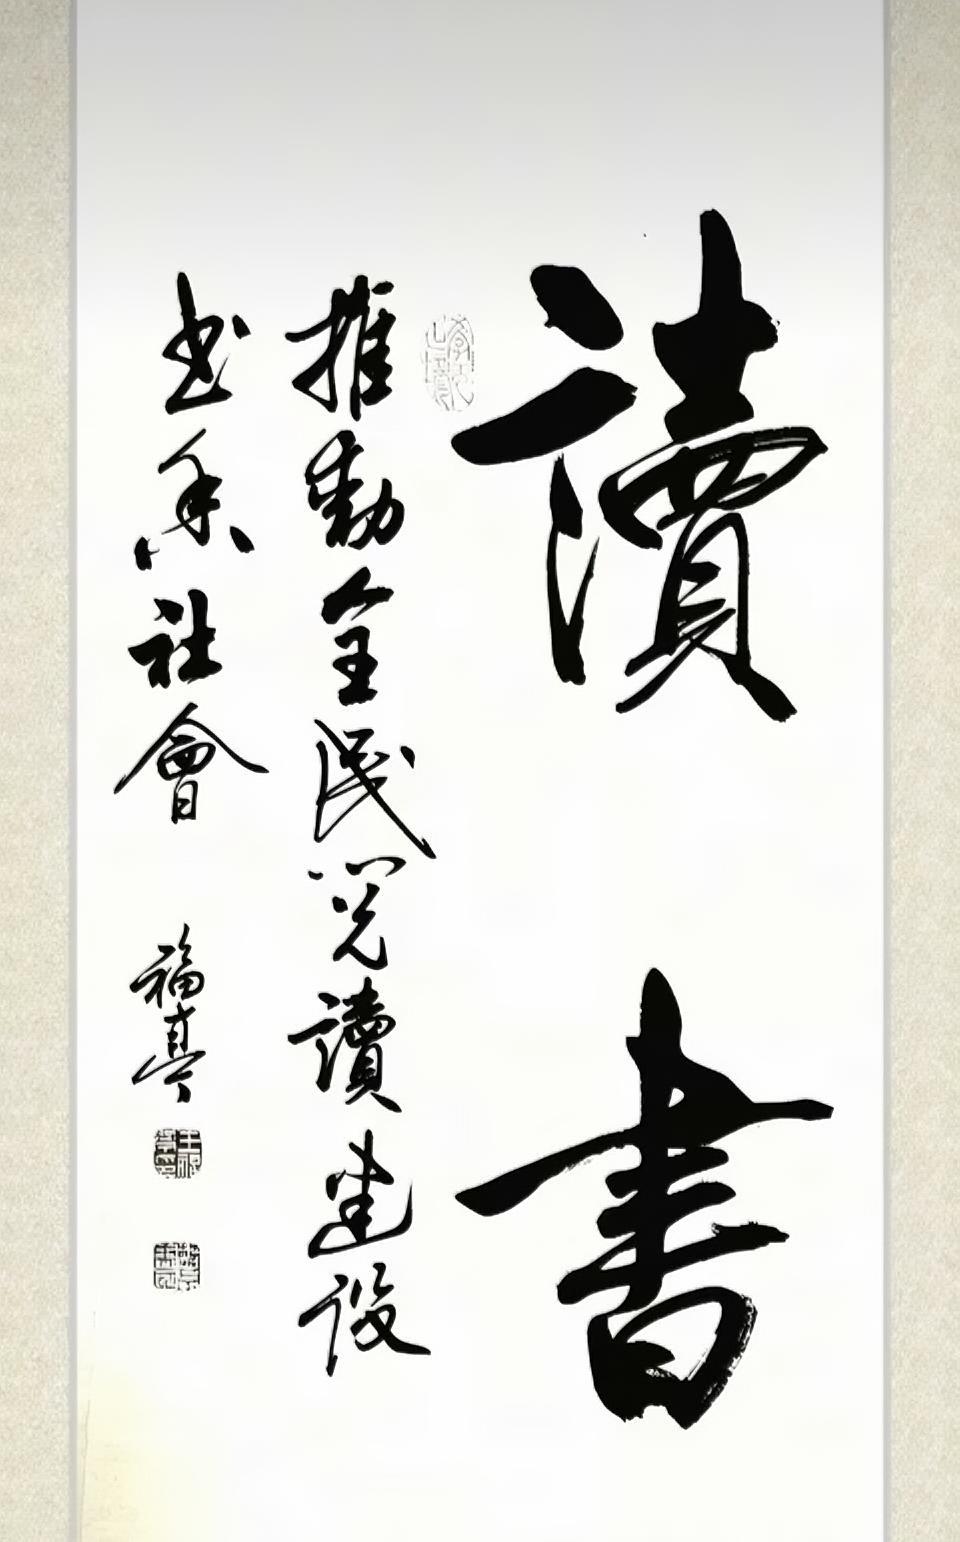 讀書
推動全民閱讀建设
书香社會
福亭